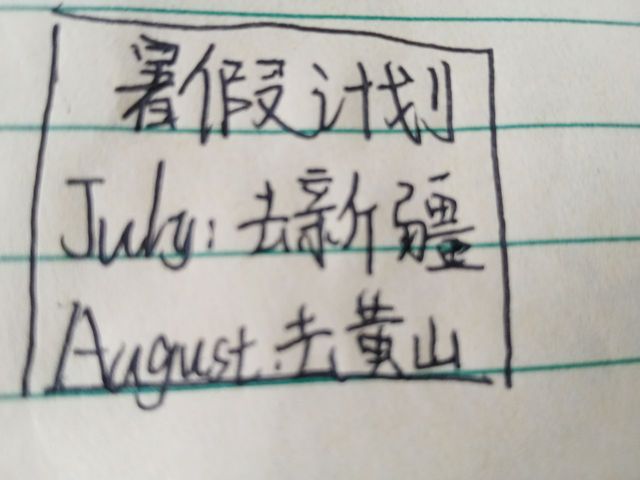 暑假计划
July: 去新疆
August: 去黄山